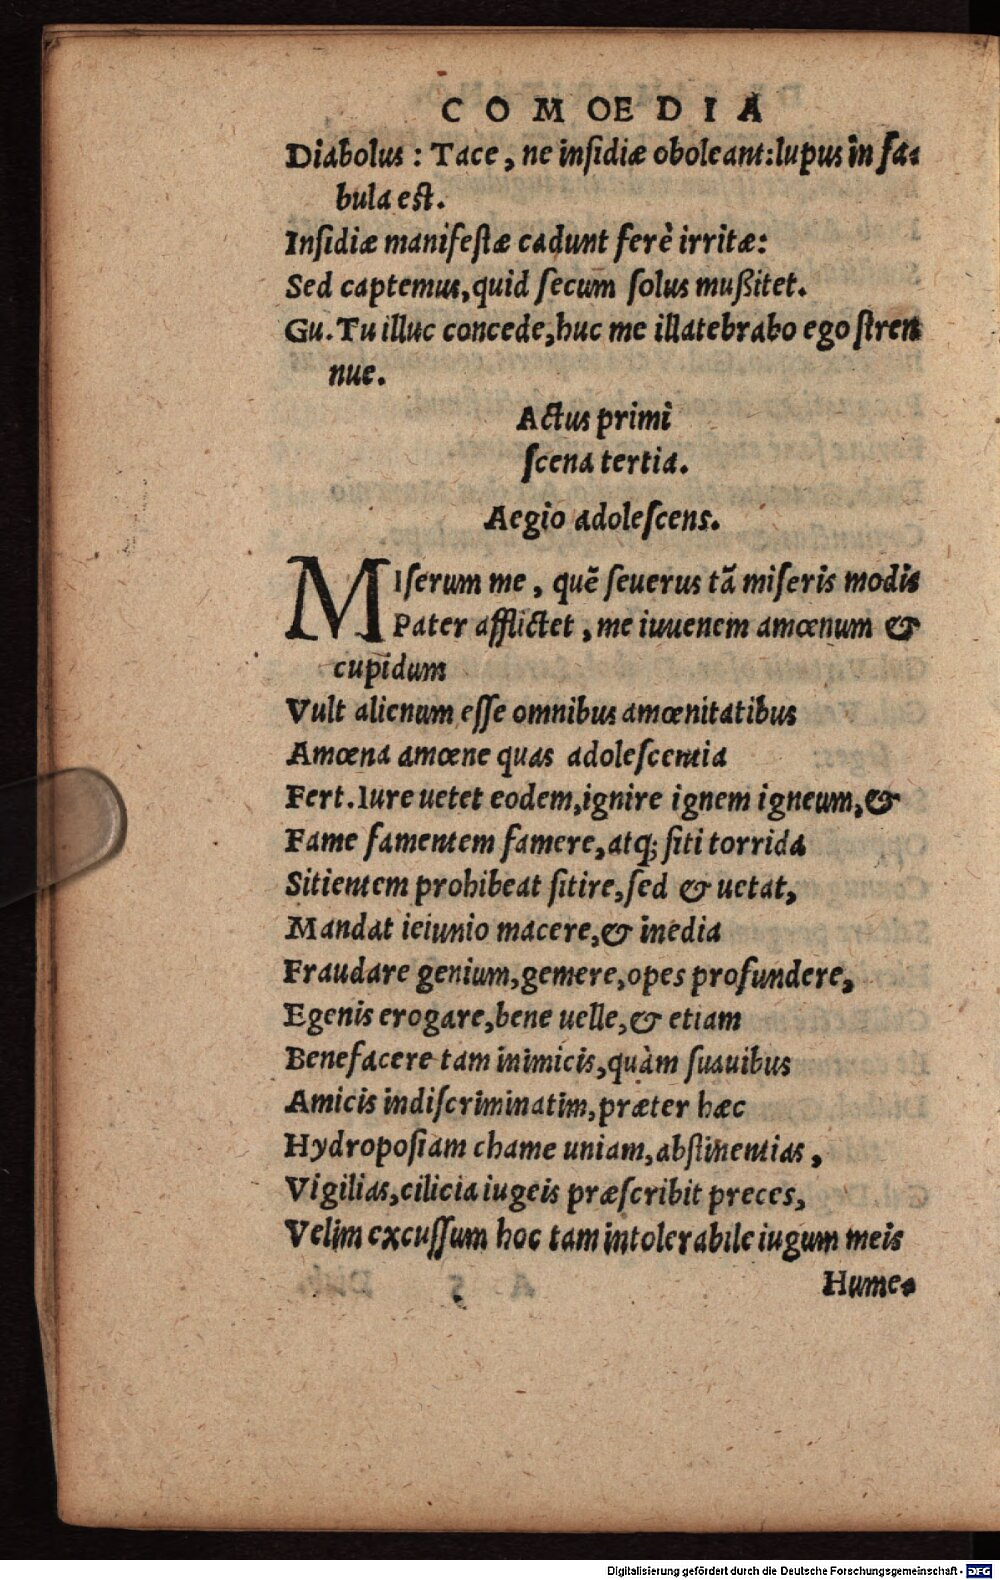 COMOEDIA
Diabolus : Tace, ne insidiæ oboleant:lupus in fa-
bula est.
Insidiæ manifestæ cadunt ferè irritæ:
Sed captemus,quid secum solus mußitet.
Gu. Tu illuc concede,huc me illatebrabo ego stren
nue.
Actus primi
scena tertia.
Aegio adolescens.
MIserum me, quē seuerus tā miseris modis
Pater afflictet, me iuuenem amœnum &
cupidum
Vult alienum esse omnibus amœnitatibus
Amœna amœne quas adolescentia
Fert. Iure uetet eodem,ignire ignem igneum,&
Fame famentem famere,atq; siti torrida
Sitientem prohibeat sitire,sed & uetat,
Mandat ieiunio macere,& inedia
Fraudare genium,gemere,opes profundere,
Egenis erogare,bene uelle,& etiam
Benefacere tam inimicis,quàm suauibus
Amicis indiscriminatim,præter hæc
Hydroposiam chame uniam,abstinentias,
Vigilias,cilicia iugeis præscribit preces,
Velim excussum hoc tam intolerabile iugum meis
Hume-
Digitalisierung gefördert durch die Deutsche Forschungsgemeinschaft - DFG